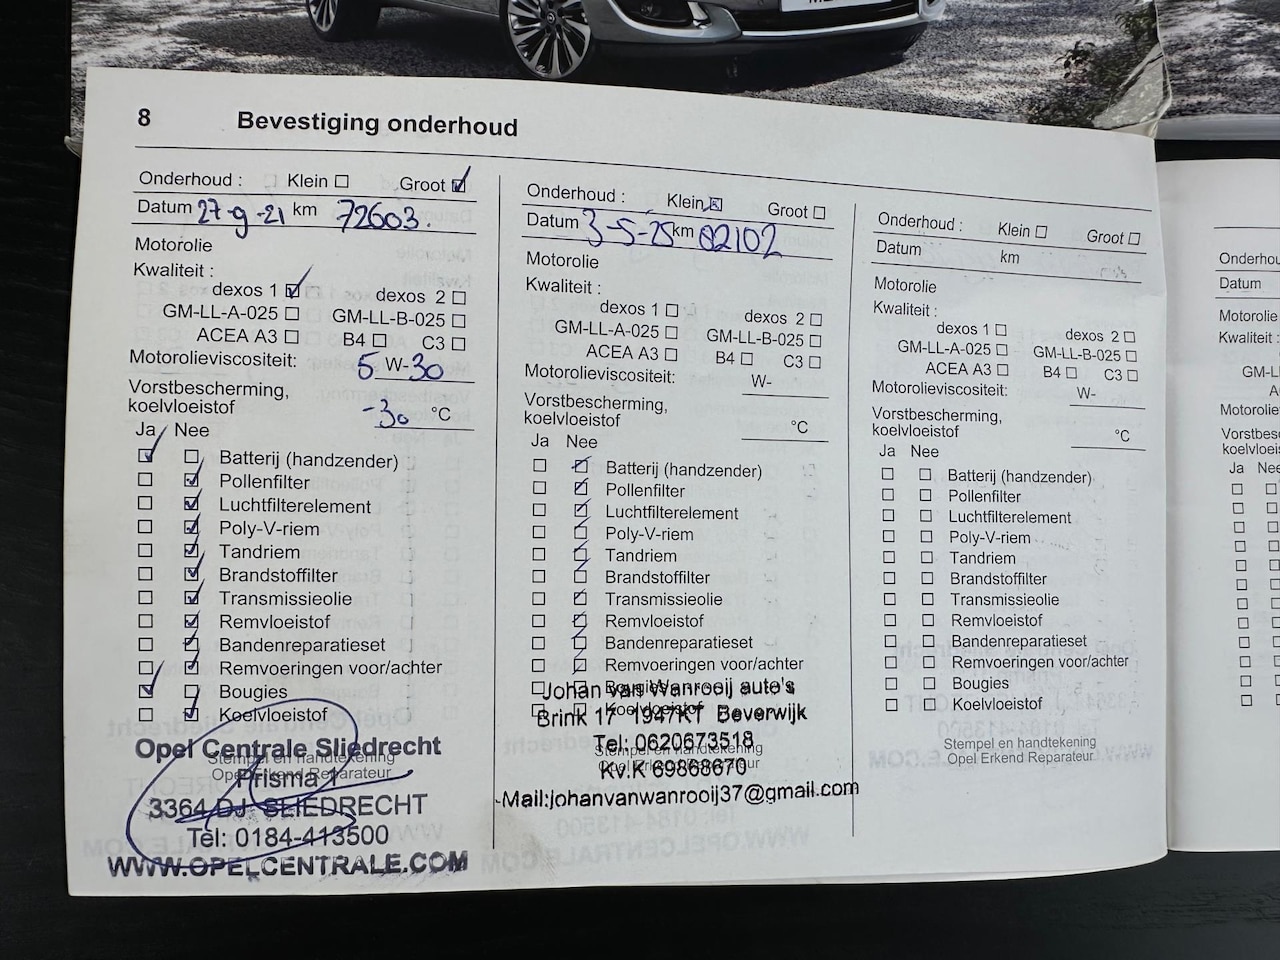 8 Bevestiging onderhoud
Onderhoud : Klein Groot
Datum 27-9-21 km 72603.
Motorolie
Kwaliteit :
dexos 1 dexos 2
GM-LL-A-025 GM-LL-B-025
ACEA A3 B4 C3
Motorolieviscositeit: 5 W-30
Vorstbescherming,
koelvloeistof -30 °C
Ja Nee
Batterij (handzender)
Pollenfilter
Luchtfilterelement
Poly-V-riem
Tandriem
Brandstoffilter
Transmissieolie
Remvloeistof
Bandenreparatieset
Remvoeringen voor/achter
Bougies
Koelvloeistof
Opel Centrale Sliedrecht
Stempel en handtekening
Opel Erkend Reparateur
Prisma 1
3364 DJ SLIEDRECHT
Tel: 0184-413500
WWW.OPELCENTRALE.COM
Onderhoud : Klein Groot
Datum 3-5-25 km 82102
Motorolie
Kwaliteit :
dexos 1 dexos 2
GM-LL-A-025 GM-LL-B-025
ACEA A3 B4 C3
Motorolieviscositeit: W-
Vorstbescherming,
koelvloeistof °C
Ja Nee
Batterij (handzender)
Pollenfilter
Luchtfilterelement
Poly-V-riem
Tandriem
Brandstoffilter
Transmissieolie
Remvloeistof
Bandenreparatieset
Remvoeringen voor/achter
Bougies
Johan van Wanrooij auto's
Koelvloeistof
Brink 17 1947KT Beverwijk
Tel: 0620673518
Stempel en handtekening
Opel Erkend Reparateur
Kv.K 69868670
Mail:johanvanwanrooij37@gmail.com
Onderhoud : Klein Groot
Datum km
Motorolie
Kwaliteit :
dexos 1 dexos 2
GM-LL-A-025 GM-LL-B-025
ACEA A3 B4 C3
Motorolieviscositeit: W-
Vorstbescherming,
koelvloeistof °C
Ja Nee
Batterij (handzender)
Pollenfilter
Luchtfilterelement
Poly-V-riem
Tandriem
Brandstoffilter
Transmissieolie
Remvloeistof
Bandenreparatieset
Remvoeringen voor/achter
Bougies
Koelvloeistof
Stempel en handtekening
Opel Erkend Reparateur
Datum
Motorolie
Kwaliteit :
Ja Nee